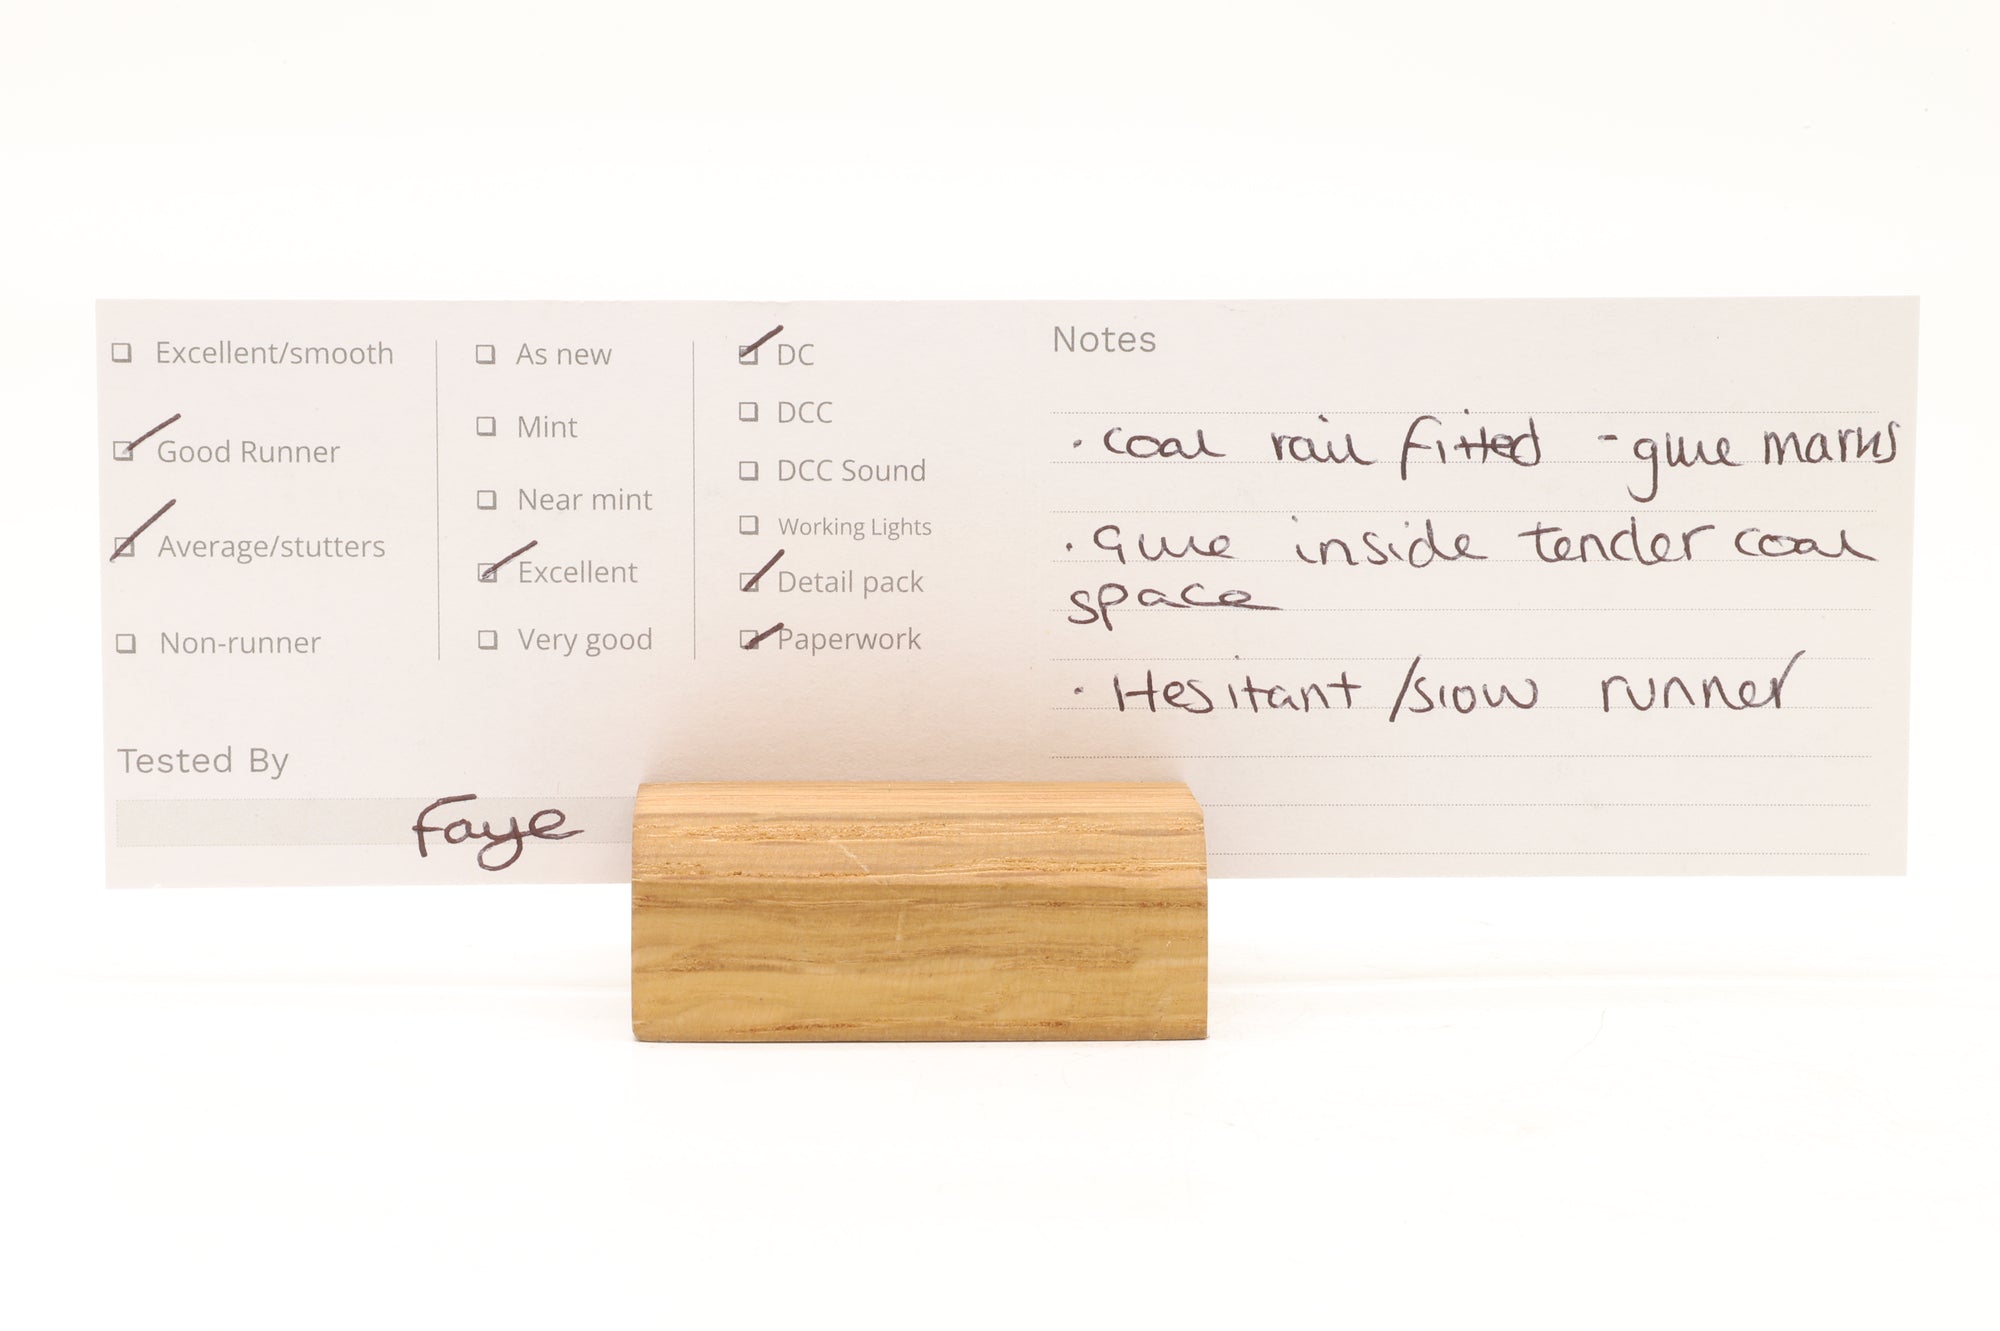 Excellent/smooth
Good Runner
Average/stutters
Non-runner
As new
Mint
Near mint
Excellent
Very good
DC
DCC
DCC Sound
Working Lights
Detail pack
Paperwork
Tested By
Faye
Notes
· coal rail fitted - glue marks
· Glue inside tender coal
space
· Hesitant /slow runner